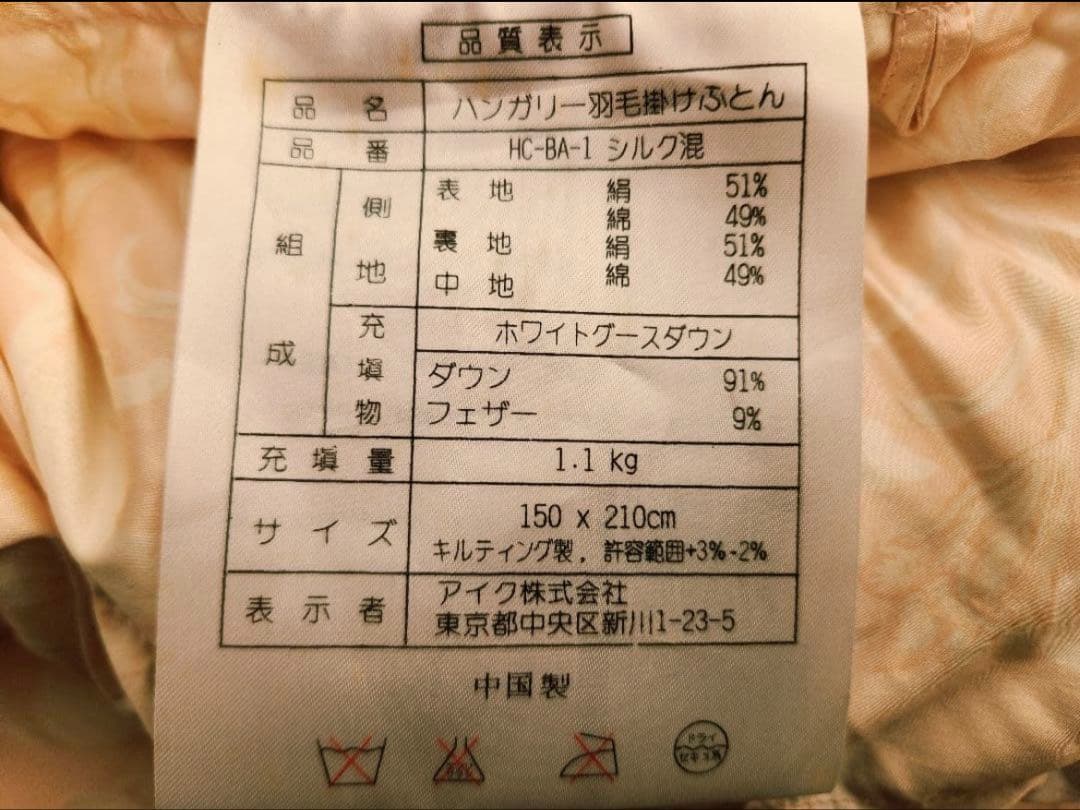 品質表示
品名 ハンガリー羽毛掛けふとん
品番 HC-BA-1 シルク混
組成 側地 表地 絹 51%
綿 49%
裏地 絹 51%
中地 綿 49%
充填物 ホワイトグースダウン
ダウン 91%
フェザー 9%
充填量 1.1 kg
サイズ 150 x 210cm
キルティング製，許容範囲+3%-2%
表示者 アイク株式会社
東京都中央区新川1-23-5
中国製
ドライ
セキユ系